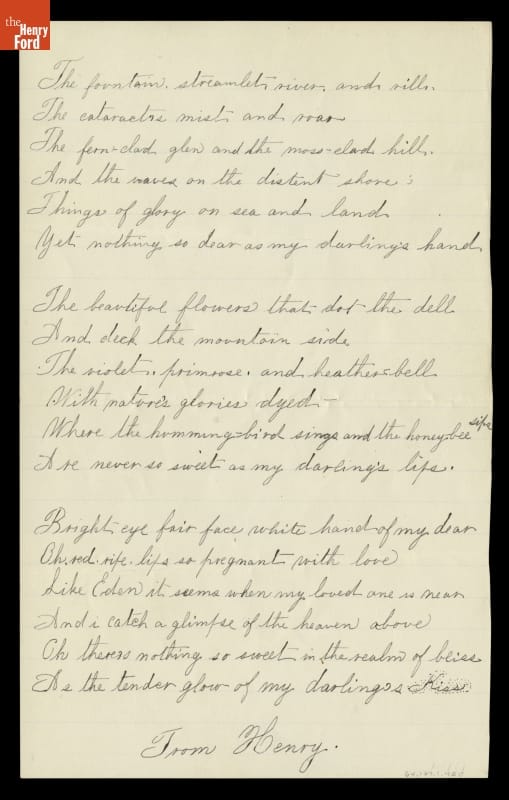 the
Henry
Ford
The fountain. streamlet, river, and rill.
The cataracts mist and roar
The fern-clad glen and the moss-clad hill.
And the waves on the distent shore:
Things of glory on sea and land
Yet nothing so dear as my darling's hand.
The beautiful flowers that dot the dell
And deck the mountain side
The violet. primrose. and heather=bell
With nature's glories dyed-
Where the humming=bird sings and the honey-bee sips
Are never so sweet as my darling's lips.
Bright eye fair face white hand of my dear
Oh. red. ripe. lips so pregnant with love
Like Eden it seems when my loved one is near
And i catch a glimpse of the heaven above
Oh there's nothing so sweet in the realm of bliss
As the tender glow of my darling's Kiss.
From Henry.